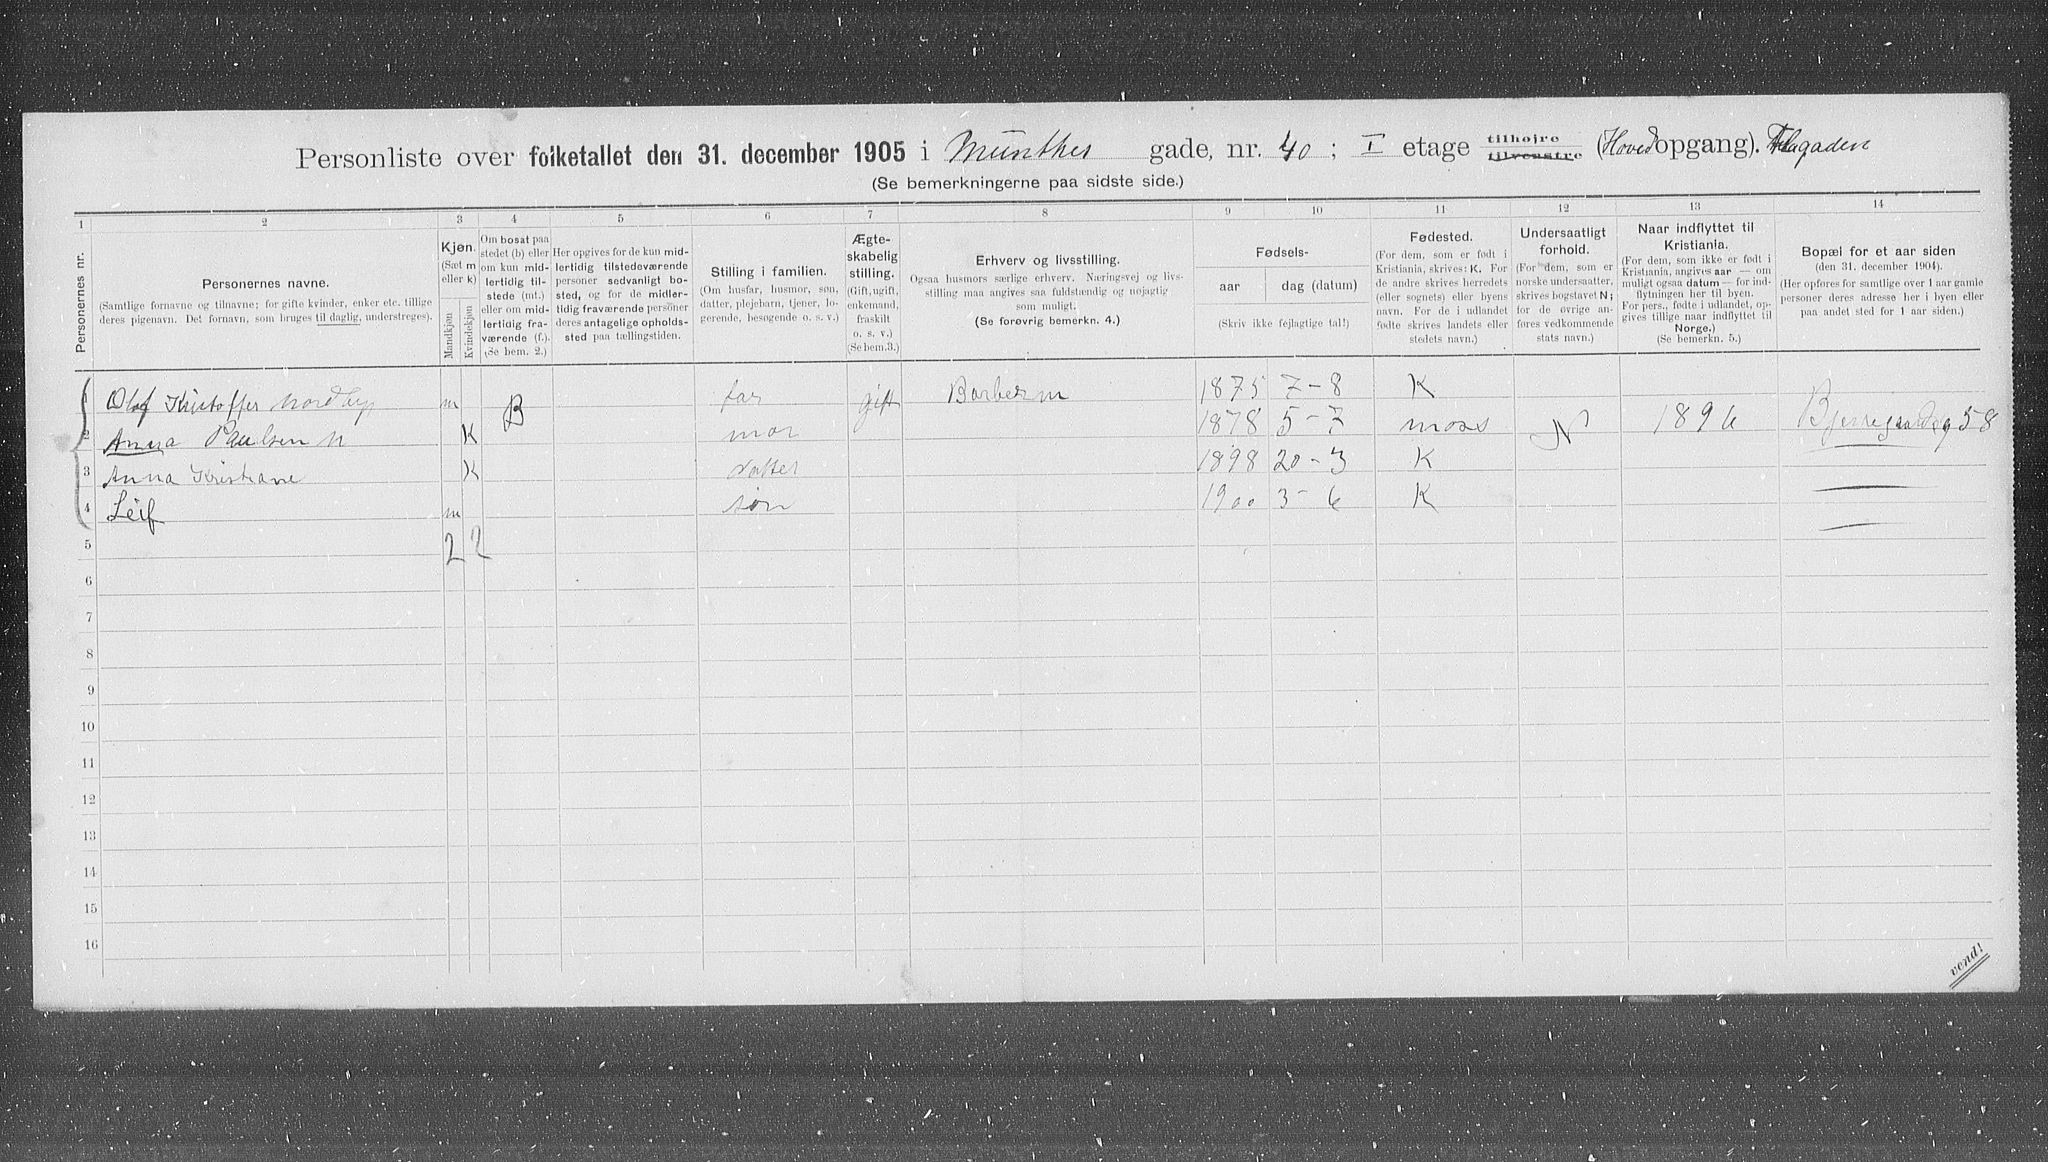 Personliste over folketallet den 31. december 1905 i Munthes gade, nr. 40; I etage tilhøjre tilvenstre (Hovedopgang).
(Se bemerkningerne paa sidste side.)
1 2 3 4 5 6 7 8 9 10 11 12 13 14
Personernes nr.
Personernes navne.
(Samtlige fornavne og tilnavne; for gifte kvinder, enker etc. tillige
deres pigenavn. Det fornavn, som bruges til daglig, understreges).
Kjøn.
(Sæt m
eller k)
Mandkjøn
Kvindekjøn
Om bosat paa
stedet (b) eller
om kun mid-
lertidig til-
stede (mt.)
eller om mid-
lertidig fra-
værende (f.).
(Se bem. 2.)
Her opgives for de kun mid-
lertidig tilstedeværende
personer sedvanligt bo-
sted, og for de midler-
tidig fraværende personer
deres antagelige opholds-
sted paa tællingstiden.
Stilling i familien.
(Om husfar, husmor, søn,
datter, plejebarn, tjener, lo-
gerende, besøgende o. s. v.)
Ægte-
skabelig
stilling.
(Gift, ugift,
enkemand,
fraskilt
o. s. v.)
(Se bem.3.)
Erhverv og livsstilling.
Ogsaa husmors særlige erhverv. Næringsvej og livs-
stilling maa angives saa fuldstændig og nøjagtig
som muligt.
(Se forøvrig bemerkn. 4.)
Fødsels-
aar dag (datum)
(Skriv ikke fejlagtige tal!)
Fødested.
(For dem, som er født i
Kristiania, skrives: K. For
de andre skrives herredets
(eller sognets) eller byens
navn. For de i udlandet
fødte skrives landets eller
stedets navn.)
Undersaatligt
forhold.
(For dem, som er
norske undersaatter,
skrives bogstavet N;
for de øvrige an-
føres vedkommende
stats navn.)
Naar indflyttet til
Kristiania.
(For dem, som ikke er født i
Kristiania, angives aar — om
muligt ogsaa datum — for ind-
flytningen her til byen.
For pers., fødte i udlandet, op-
gives tillige naar indflyttet til
Norge.)
(Se bemerkn. 5.)
Bopæl for et aar siden
(den 31. december 1904).
(Her opføres for samtlige over 1 aar gamle
personer deres adresse her i byen eller
paa andet sted for 1 aar siden.)
1 Olaf Kristoffer Nordby m B far gift Barber m 1875 7-8 K
2 Anna Paulsen N K mor 1878 5-7 moss N 1896 Bjerregaardsg 58
3 Anna Kristiane K datter 1898 20-3 K
4 Leif m søn 1900 3-6 K
5 2 2
6
7
8
9
10
11
12
13
14
15
16
vend!